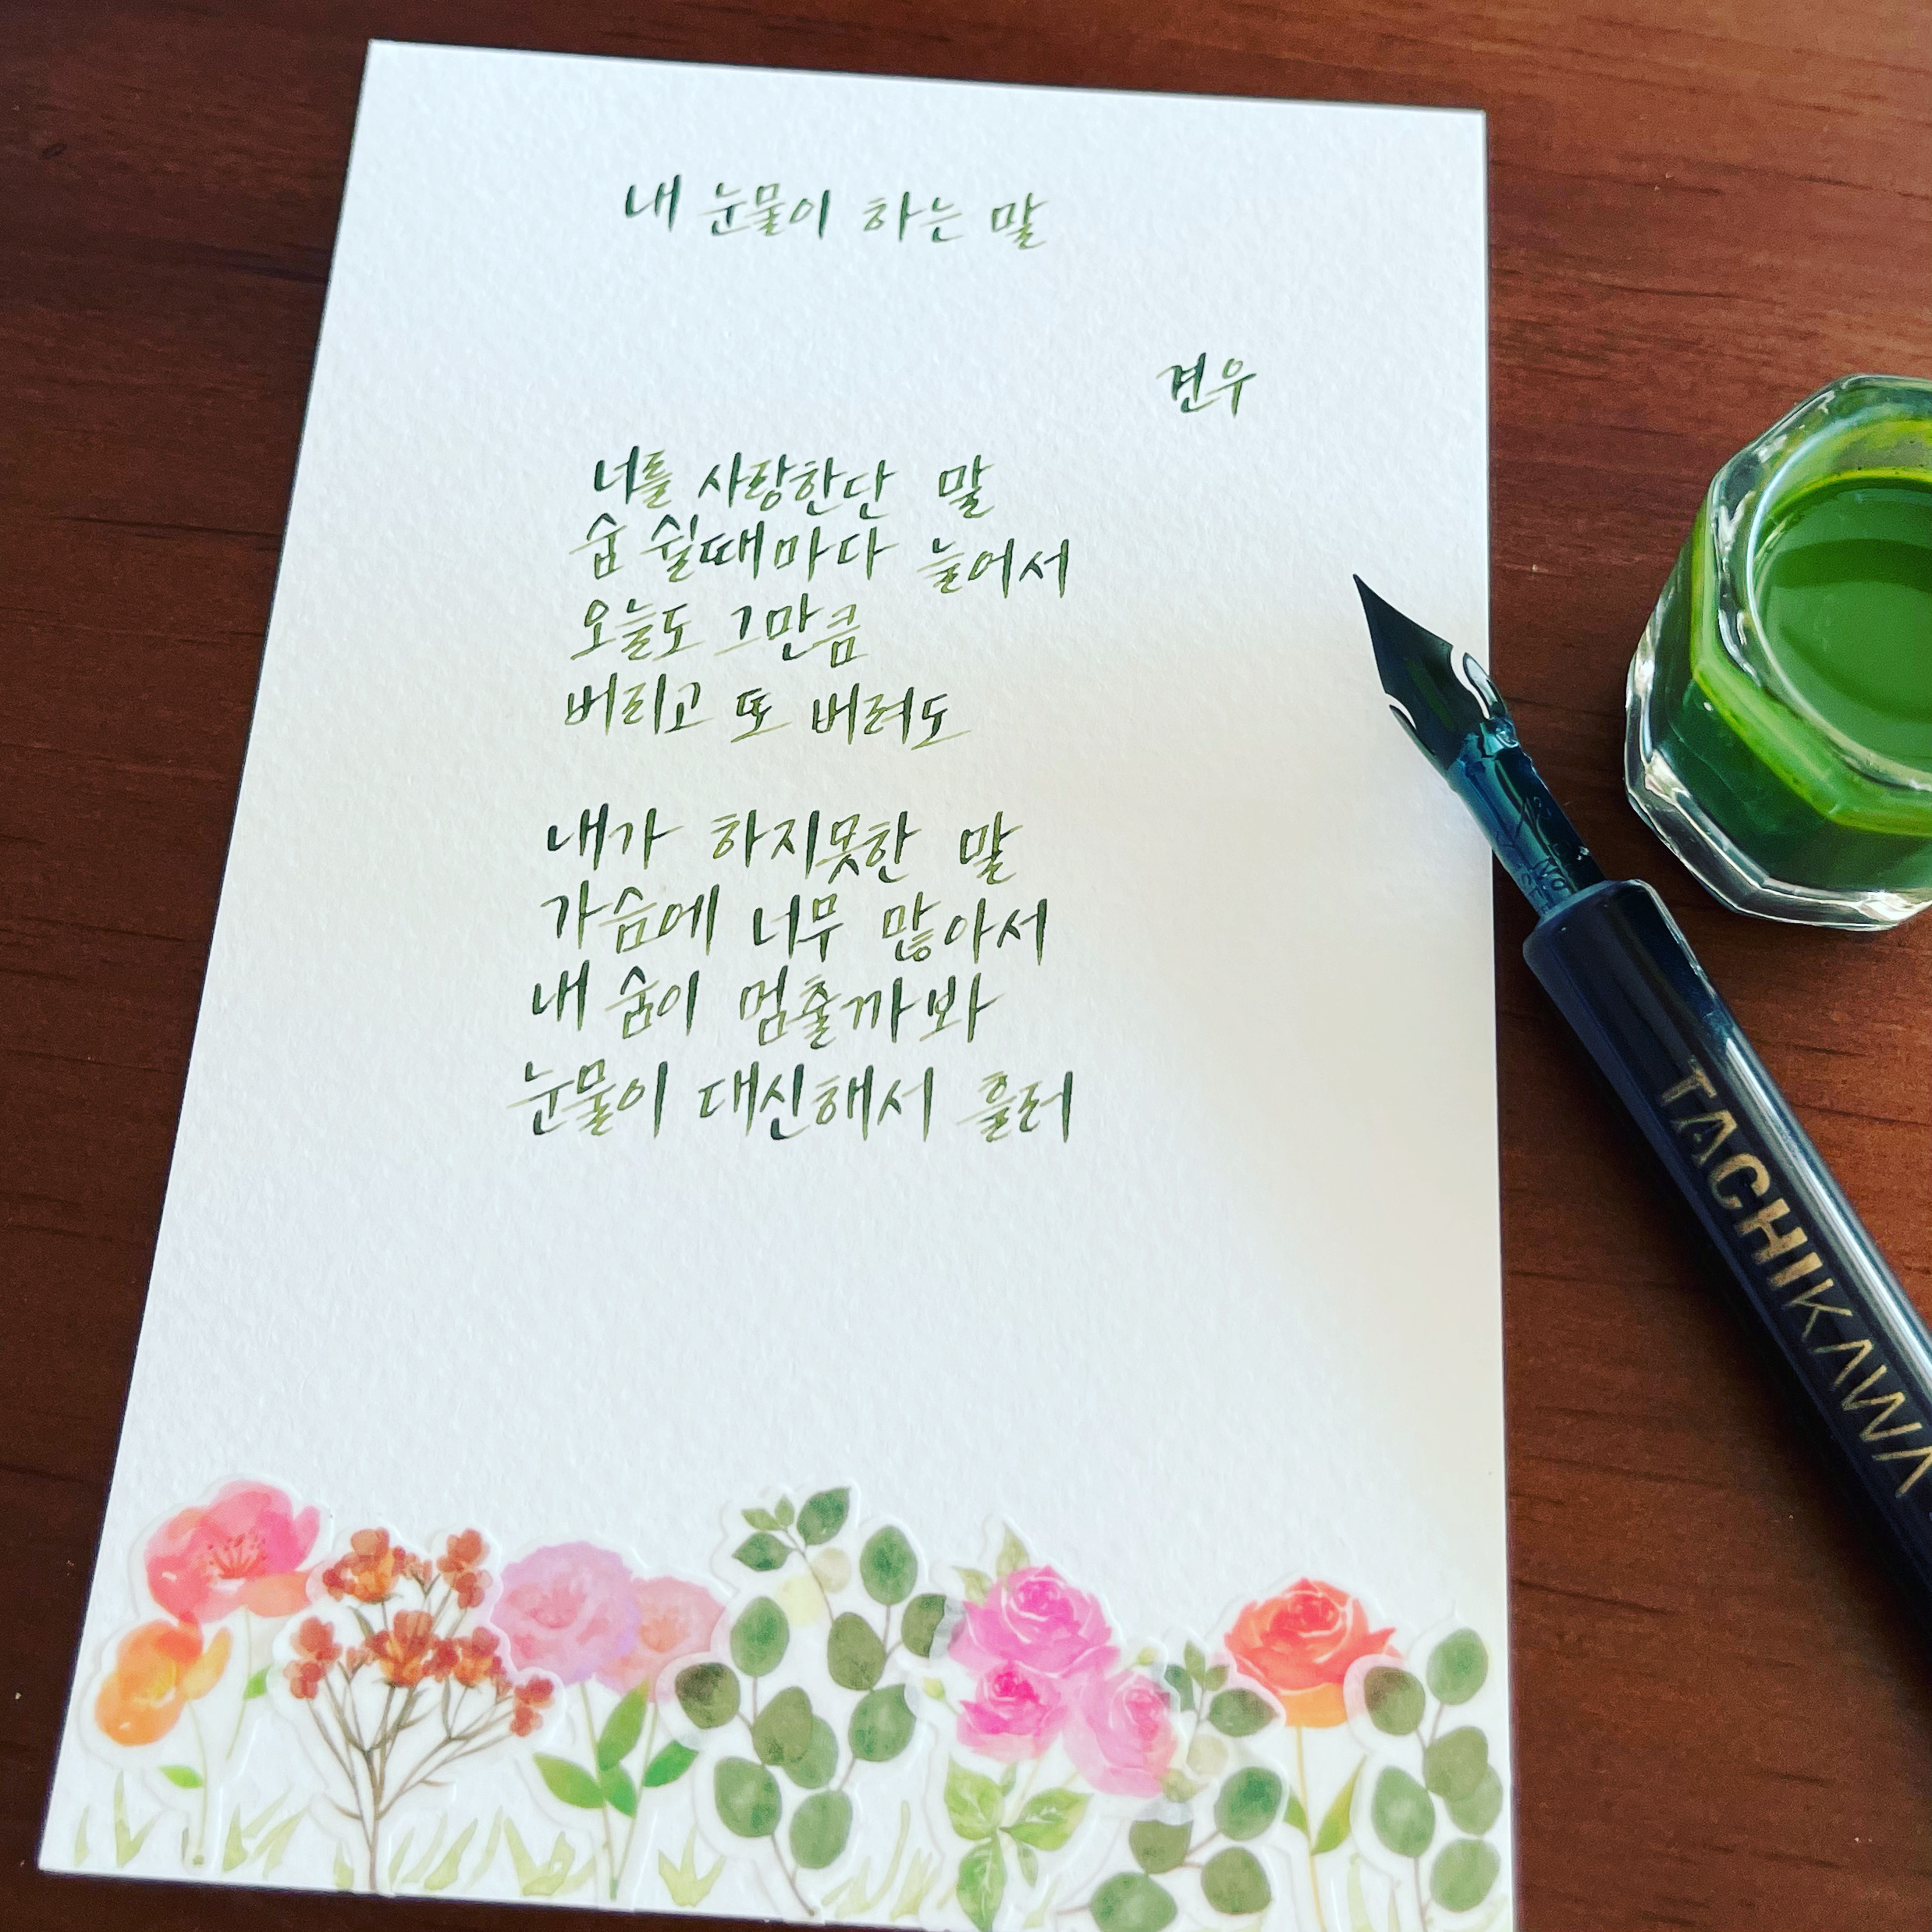 내 눈물이 하는 말
견우
너를 사랑한단 말
숨 쉴때마다 늘어서
오늘도 그만큼
버리고 또 버려도
내가 하지못한 말
가슴에 너무 많아서
내 숨이 멈출까봐
눈물이 대신해서 흘러
TACHIKAWA